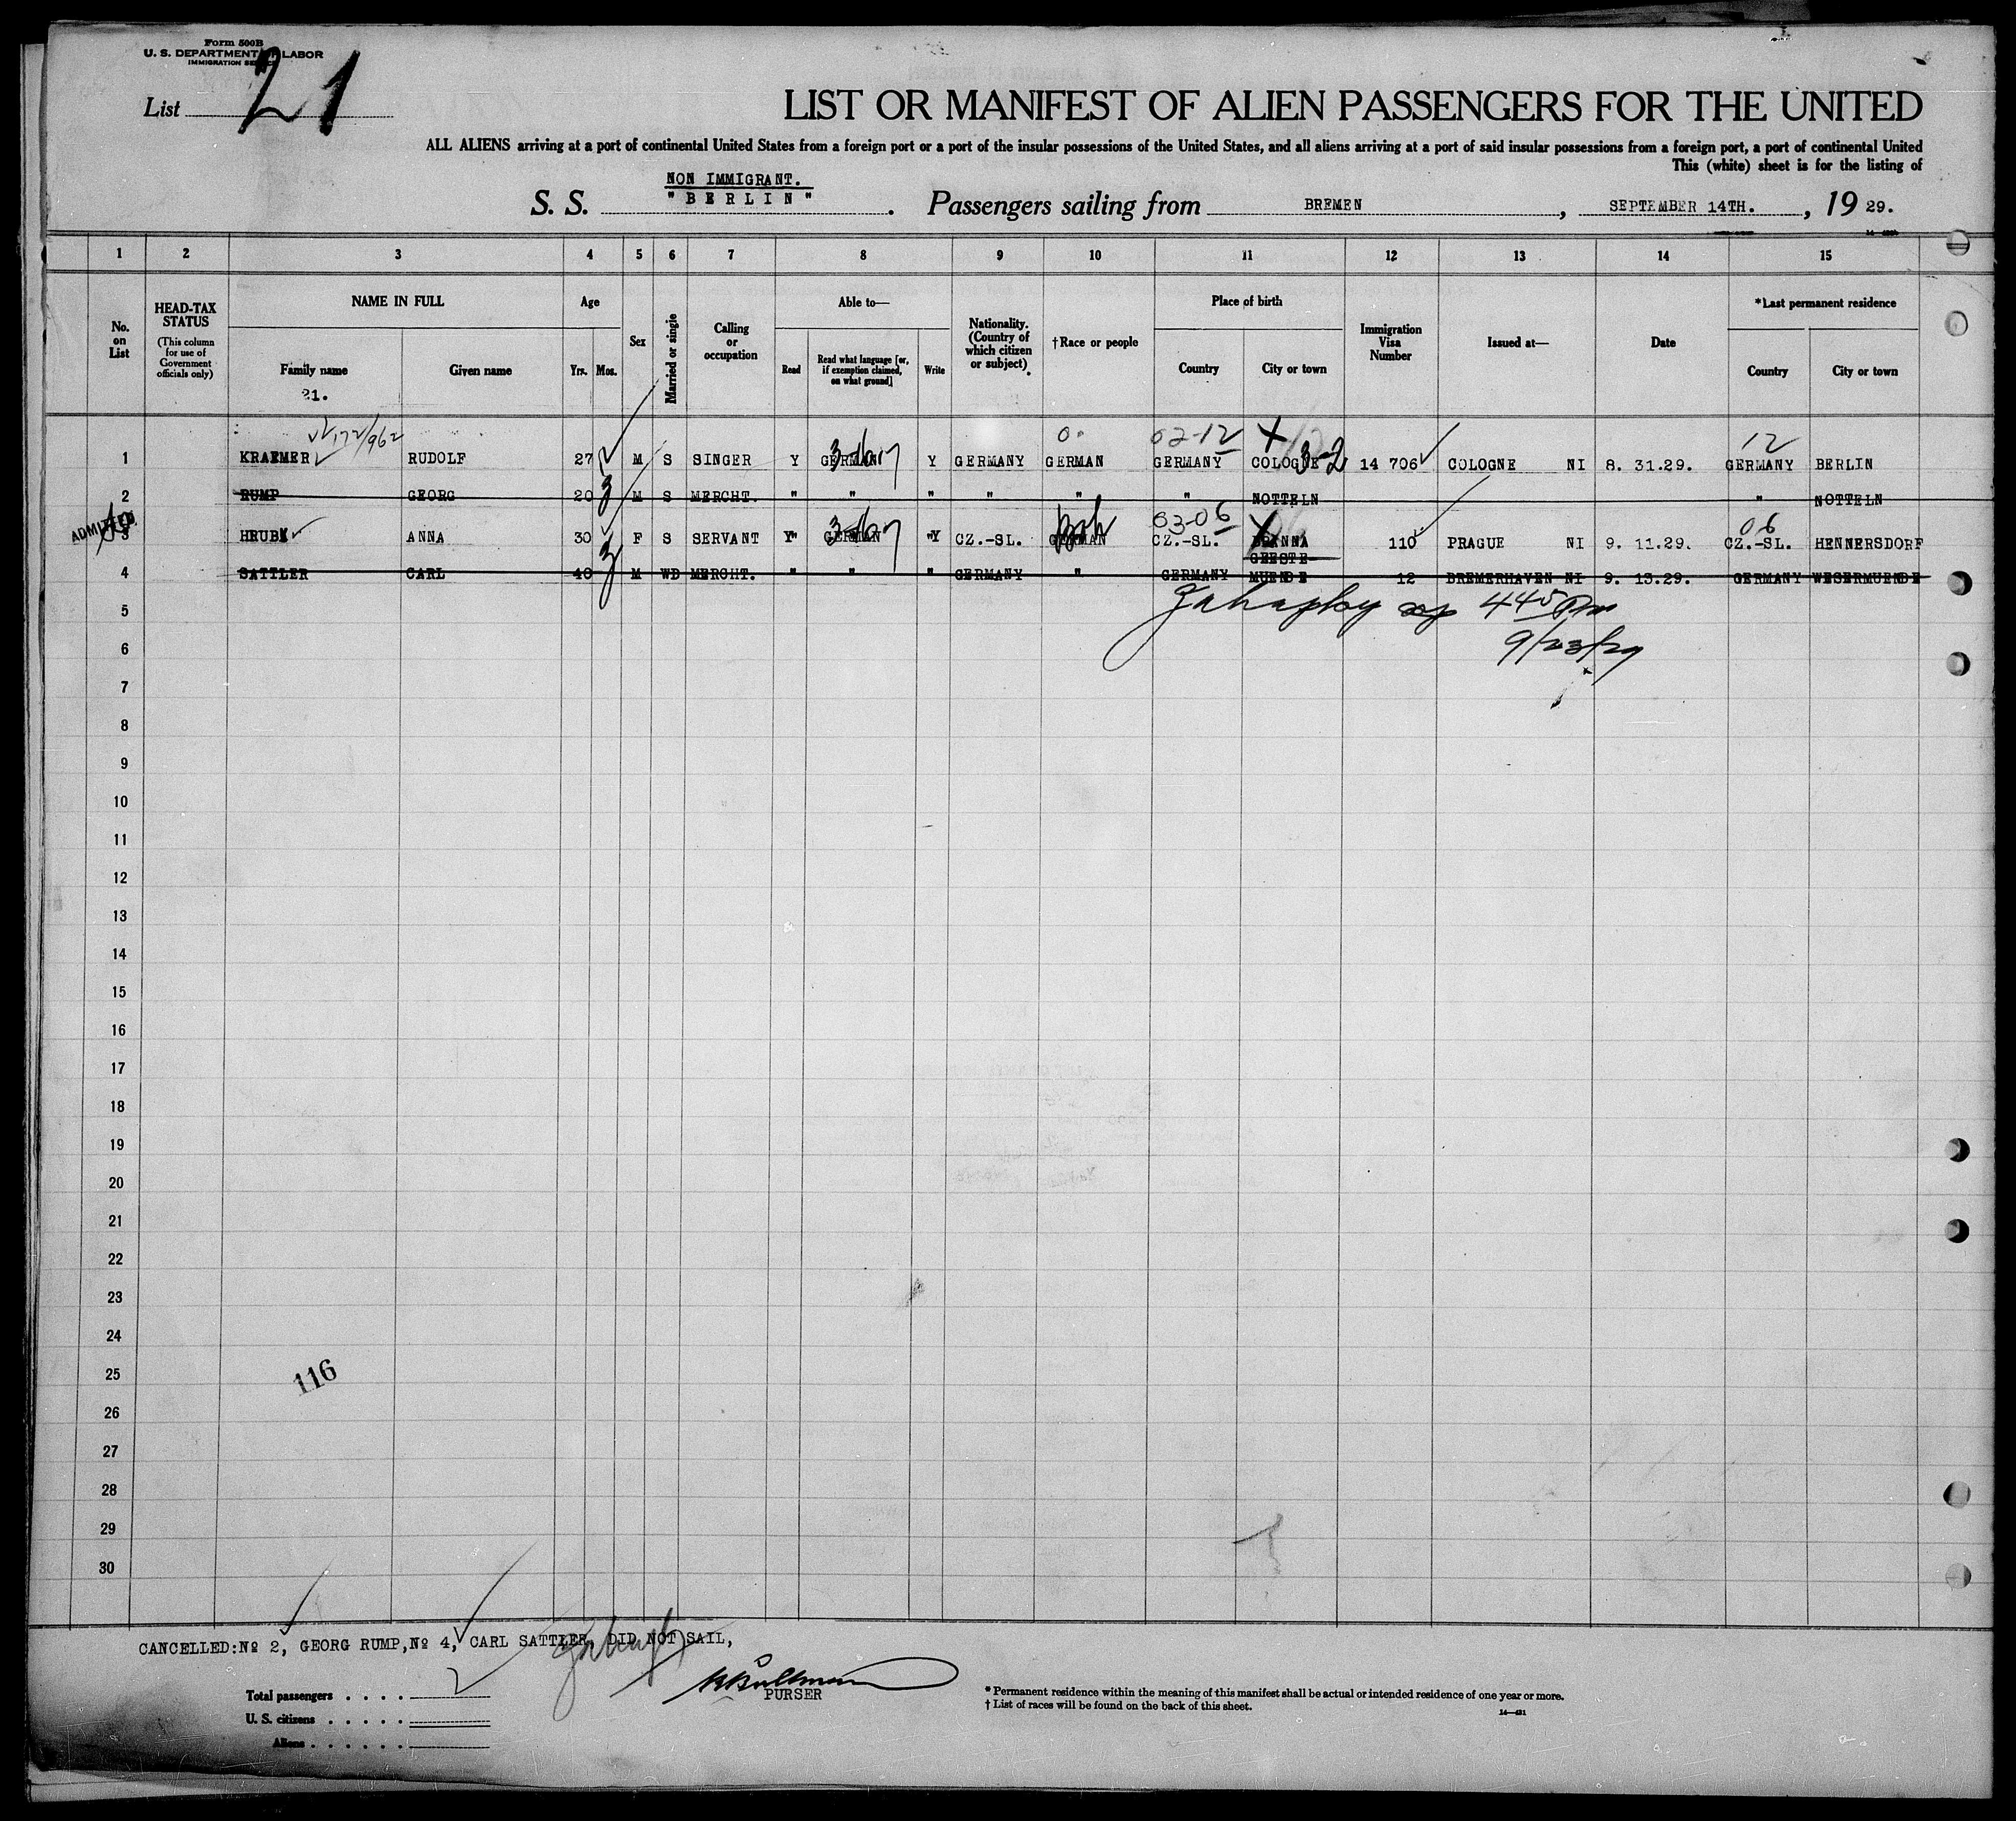 Form 500B
U. S. DEPARTMENT OF LABOR
IMMIGRATION SERVICE
List 21
LIST OR MANIFEST OF ALIEN PASSENGERS FOR THE UNITED
ALL ALIENS arriving at a port of continental United States from a foreign port or a port of the insular possessions of the United States, and all aliens arriving at a port of said insular possessions from a foreign port, a port of continental United
This (white) sheet is for the listing of
NON IMMIGRANT.
S. S. "BERLIN". Passengers sailing from BREMEN, SEPTEMBER 14TH., 19 29.
1 2 3 4 5 6 7 8 9 10 11 12 13 14 15
No. on List
HEAD-TAX STATUS (This column for use of Government officials only)
NAME IN FULL Family name Given name
21.
Age Yrs. Mos.
Sex
Married or single
Calling or occupation
Able to— Read Read what language [or, if exemption claimed, on what ground] Write
Nationality. (Country of which citizen or subject)
†Race or people
Place of birth Country City or town
Immigration Visa Number
Issued at—
Date
*Last permanent residence Country City or town
172/962 02-12 12
1 KRAEMER RUDOLF 27 M S SINGER Y GERMAN Y GERMANY GERMAN GERMANY COLOGNE 3-2 14 706 COLOGNE NI 8. 31.29. GERMANY BERLIN
2 RUMP GEORG 20 M S MERCHT. " " " " " " NOTTELN " NOTTELN
ADMITTED
63-06 06
3 HRUBY ANNA 30 F S SERVANT Y GERMAN Y CZ.-SL. GERMAN Boh CZ.-SL. 110 PRAGUE NI 9. 11.29. CZ.-SL. HENNERSDORF
GEESTE-
4 SATTLER CARL 40 M WD MERCHT. " " " GERMANY " GERMANY MUENDE 12 BREMERHAVEN NI 9. 13.29. GERMANY WESERMUENDE
5 445 Pm
6 9/23/29
7
8
9
10
11
12
13
14
15
16
17
18
19
20
21
22
23
24
25
116
26
27
28
29
30
CANCELLED:No 2, GEORG RUMP,No 4, CARL SATTLER, DID NOT SAIL,
PURSER
Total passengers . . . . 2
U. S. citizens . . . . .
Aliens . . . . . .
* Permanent residence within the meaning of this manifest shall be actual or intended residence of one year or more.
† List of races will be found on the back of this sheet.
14—431